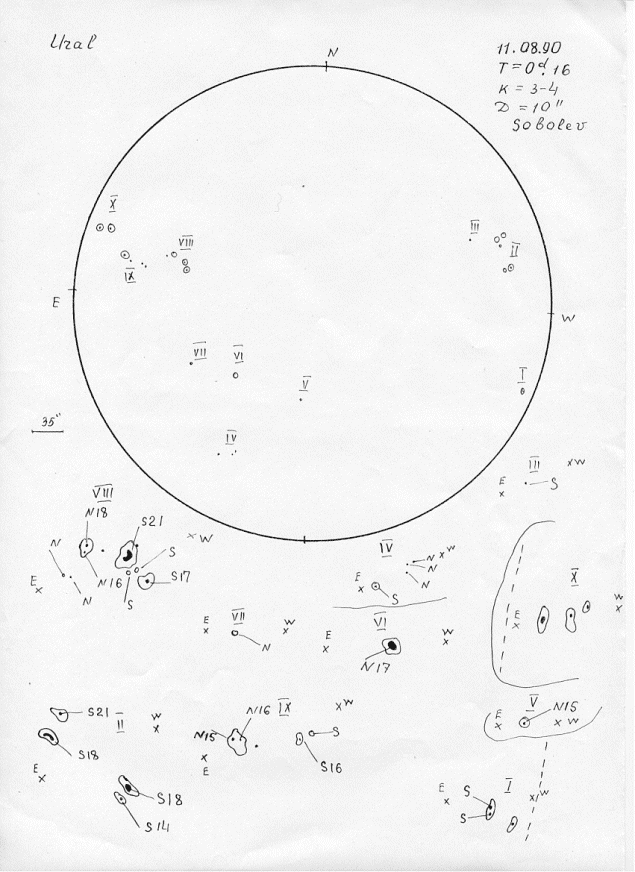 Ural
11.08.90
T = 0ᵈ.16
K = 3-4
D = 10"
Sobolev
N
X
VIII
III
II
IX
E
W
VII
VI
V
I
IV
35"
III
E x
x W
S
VIII
N18
S21
x W
N
S
E x
N16
S17
N
S
IV
N x W
N
N
E x
S
X
E x
W x
VII
E x
W x
N
VI
E x
W x
N17
S21
II
W x
S18
E x
S18
S14
N16
IX
x W
N15
S
x E
S16
V
N15
E x
x W
I
E x
S
S
x W